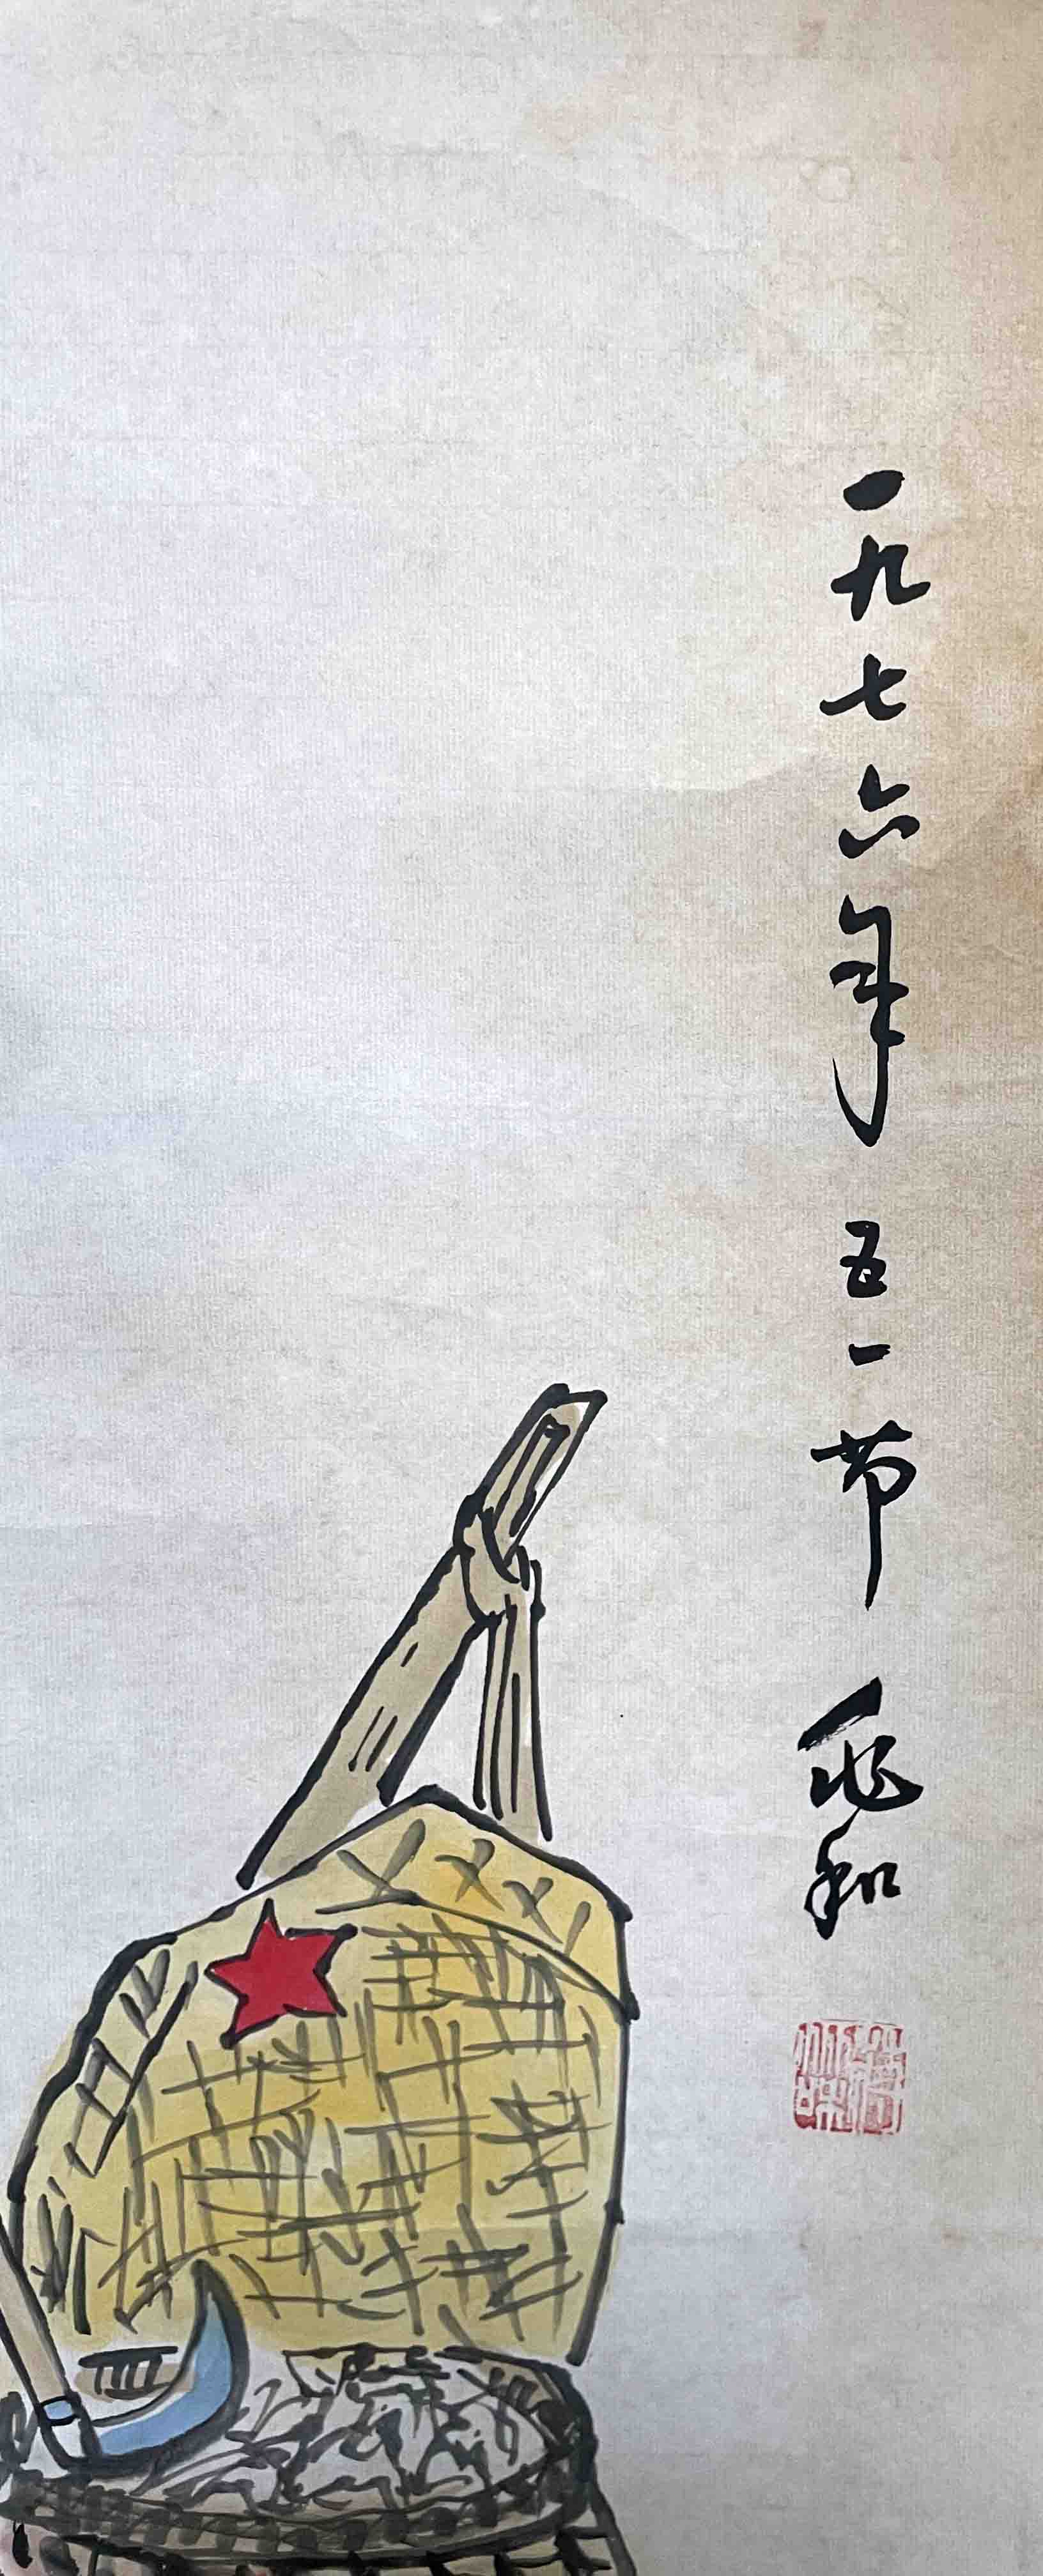 一九七六年 五一节 和